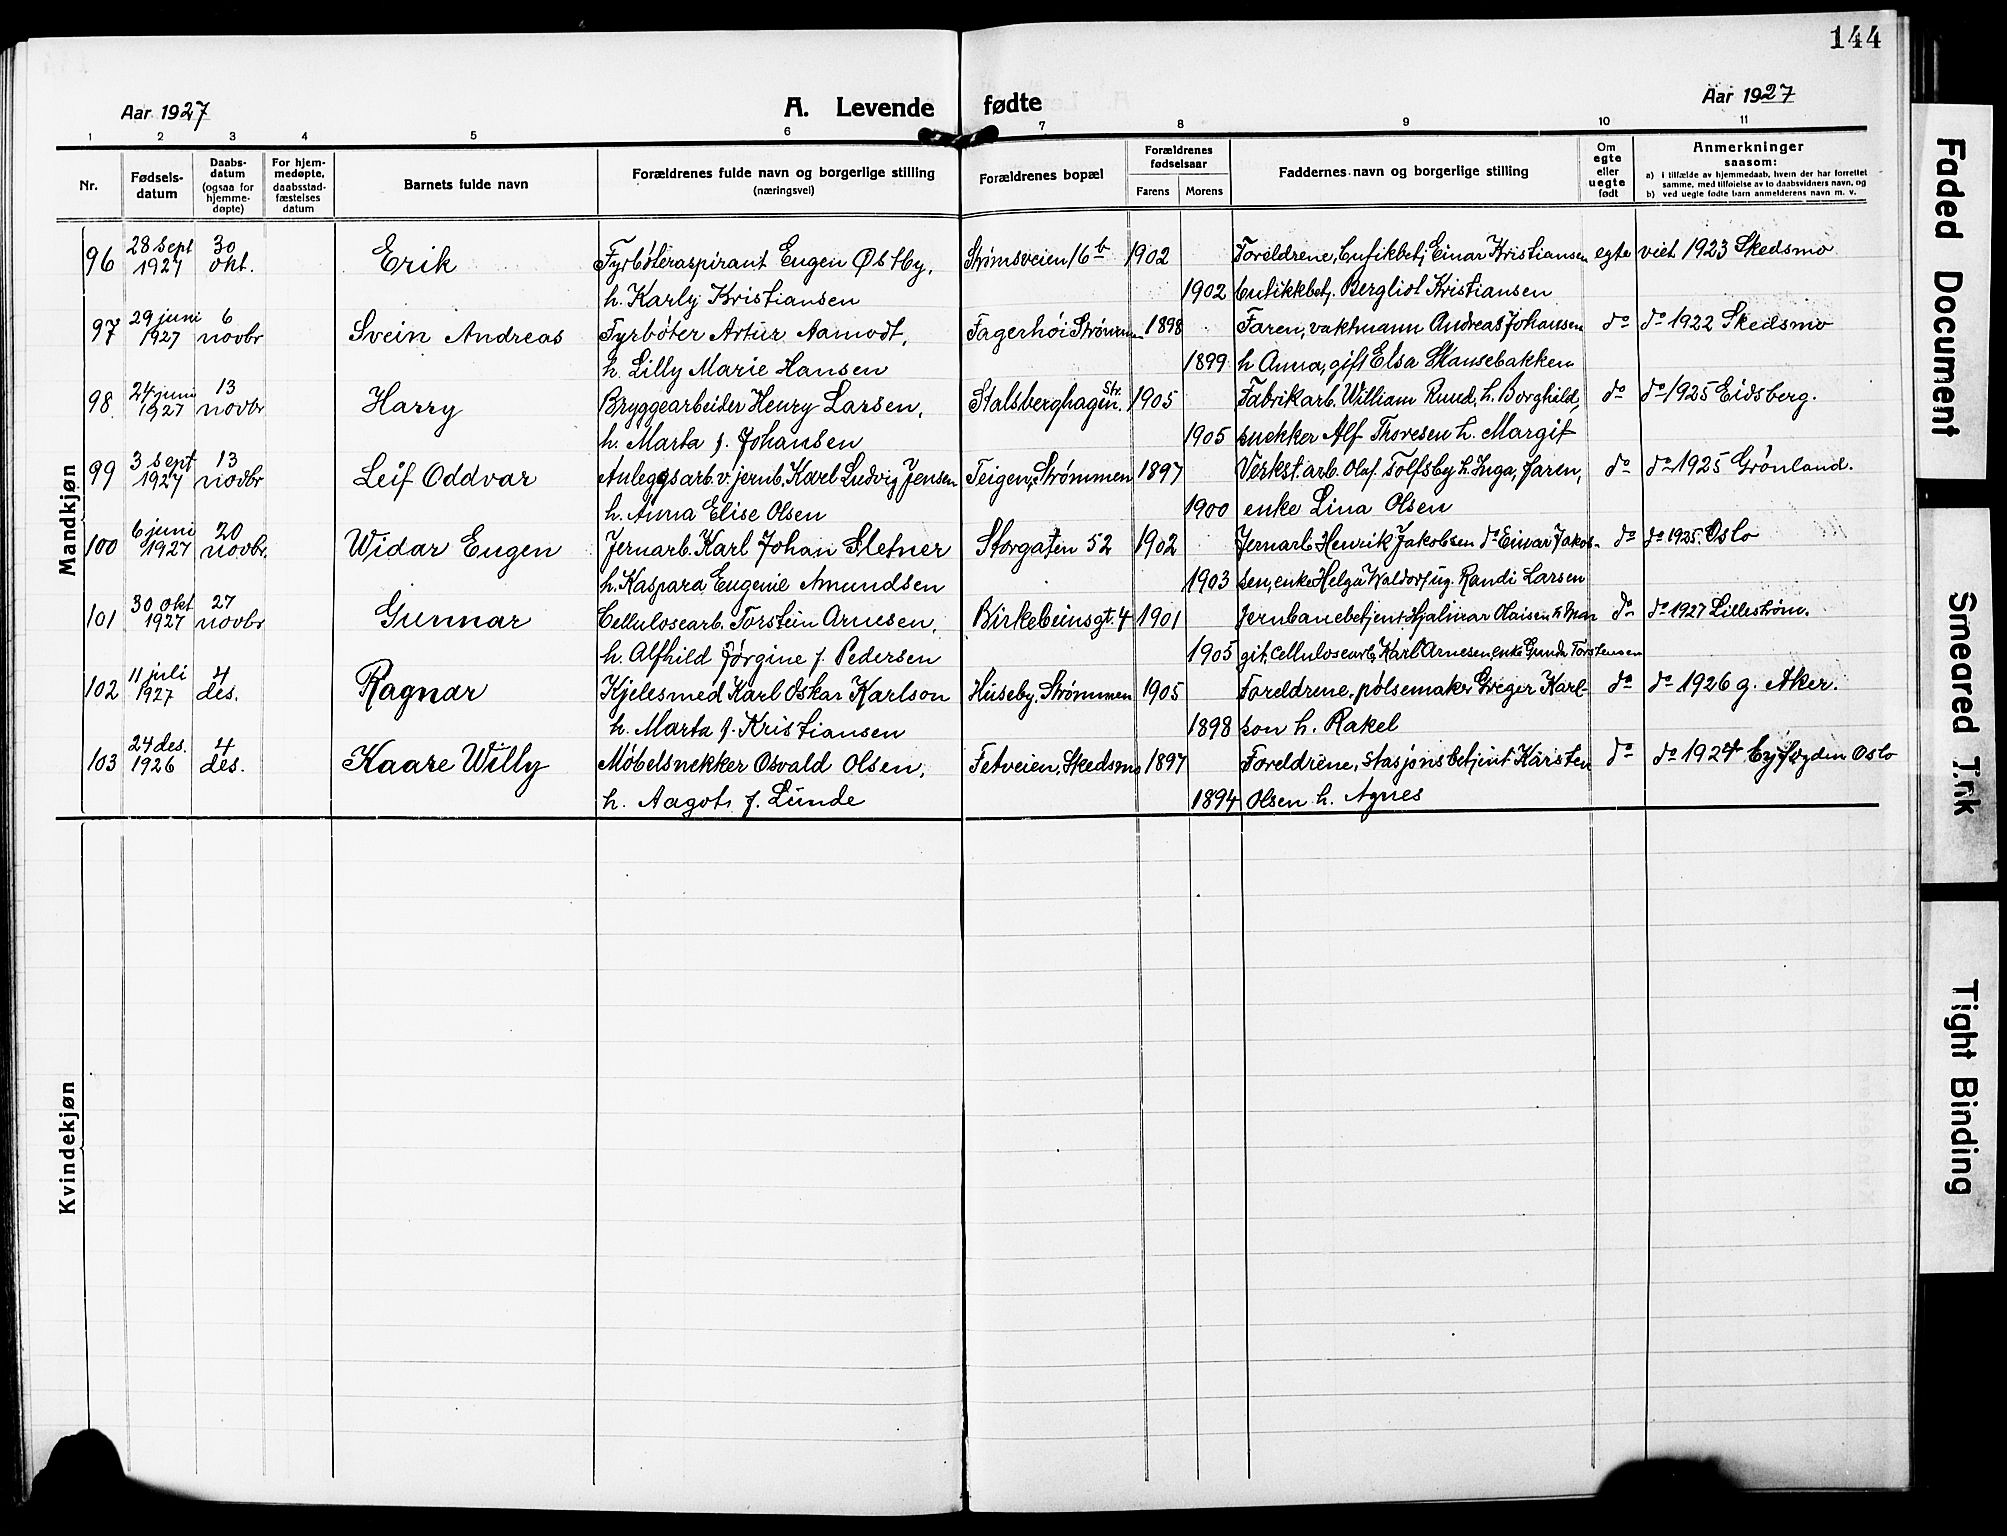 144
Aar 1927
A. Levende fødte
Aar 1927
1 2 3 4 5 6 7 8 9 10 11
Nr.
Fødsels-
datum
Daabs-
datum
(ogsaa for
hjemme-
døpte)
For hjem-
medøpte,
daabsstad-
fæstelses
datum
Barnets fulde navn
Forældrenes fulde navn og borgerlige stilling
(næringsvei)
Forældrenes bopæl
Forældrenes
fødselsaar
Farens Morens
Faddernes navn og borgerlige stilling
Om
egte
eller
uegte
født
Anmerkninger
saasom:
a) i tilfælde av hjemmedaab, hvem der har forrettet
samme, med tilføielse av to daabsvidners navn, og
b) ved uegte fødte barn anmelderens navn m. v.
Mandkjøn
96 28 sept 1927 30 okt. Erik Fyrbøteraspirant Eugen Østby, Strømsveien 16b 1902 Foreldrene, butikkbetj. Einar Kristiansen egte viet 1923 Skedsmo
h. Karly Kristiansen 1902 butikkbetj. Bergliot Kristiansen
97 29 juni 1927 6 novbr Svein Andreas Fyrbøter Artur Aamodt, Fagerhøi Strømmen 1898 Faren, vaktmann Andreas Johansen do do 1922 Skedsmo
h. Lilly Marie Hansen 1899 h Anna, gift Elsa Stansebakken
98 24 juni 1927 13 novbr Harry Bryggearbeider Henry Larsen, Stalsberghagen Str. 1905 Fabrikarb. William Ruud, h. Borghild, do do 1925 Eidsberg.
h. Marta f. Johansen 1905 snekker Alf Thoresen h. Margit
99 3 sept 1927 13 novbr Leif Oddvar Anleggsarb. v. jernb. Karl Ludvig Jensen Teigen, Strømmen 1897 Verkst. arb. Olaf Tolfsby h. Inga, faren, do do 1925 Grønland.
h. Anna Elise Olsen 1900 enke Lina Olsen
100 6 juni 1927 20 novbr. Widar Eugen Jernarb. Karl Johan Sletner Storgaten 52 1902 Jernarb. Henrik Jakobsen do Einar Jakob- do do 1925. Oslo
h. Kaspara Eugenie Amundsen 1903 sen, enke Helga ug. Randi Larsen
101 30 okt 1927 27 novbr Gunnar Cellulosearb. Torstein Arnesen, Birkebeinsgt. 4 1901 Jernbanebetjent Hjalmar Olaisen h Mar do do 1927 Lillestrøm.
h. Alfhild Jørgine f. Pedersen 1905 git, cellulosearb. Karl Arnesen, enke Gunda Torstensen
102 11 juli 1927 4 des. Ragnar Kjelesmed Karl Oskar Karlson Huseby, Strømmen 1905 Foreldrene, pølsemaker Greger Karl- do do 1926 g. Aker.
h. Marta f. Kristiansen 1898 son h. Rakel
103 24 des. 1926 4 des. Kaare Willy Møbelsnekker Osvald Olsen, Fetveien, Skedsmo 1897 Foreldrene, stasjonsbetjent Karsten do do 1924 Byfogden Oslo
h. Aagot f. Lunde 1894 Olsen h. Agnes
Kvindekjøn
Faded Document
Smeared Ink
Tight Binding